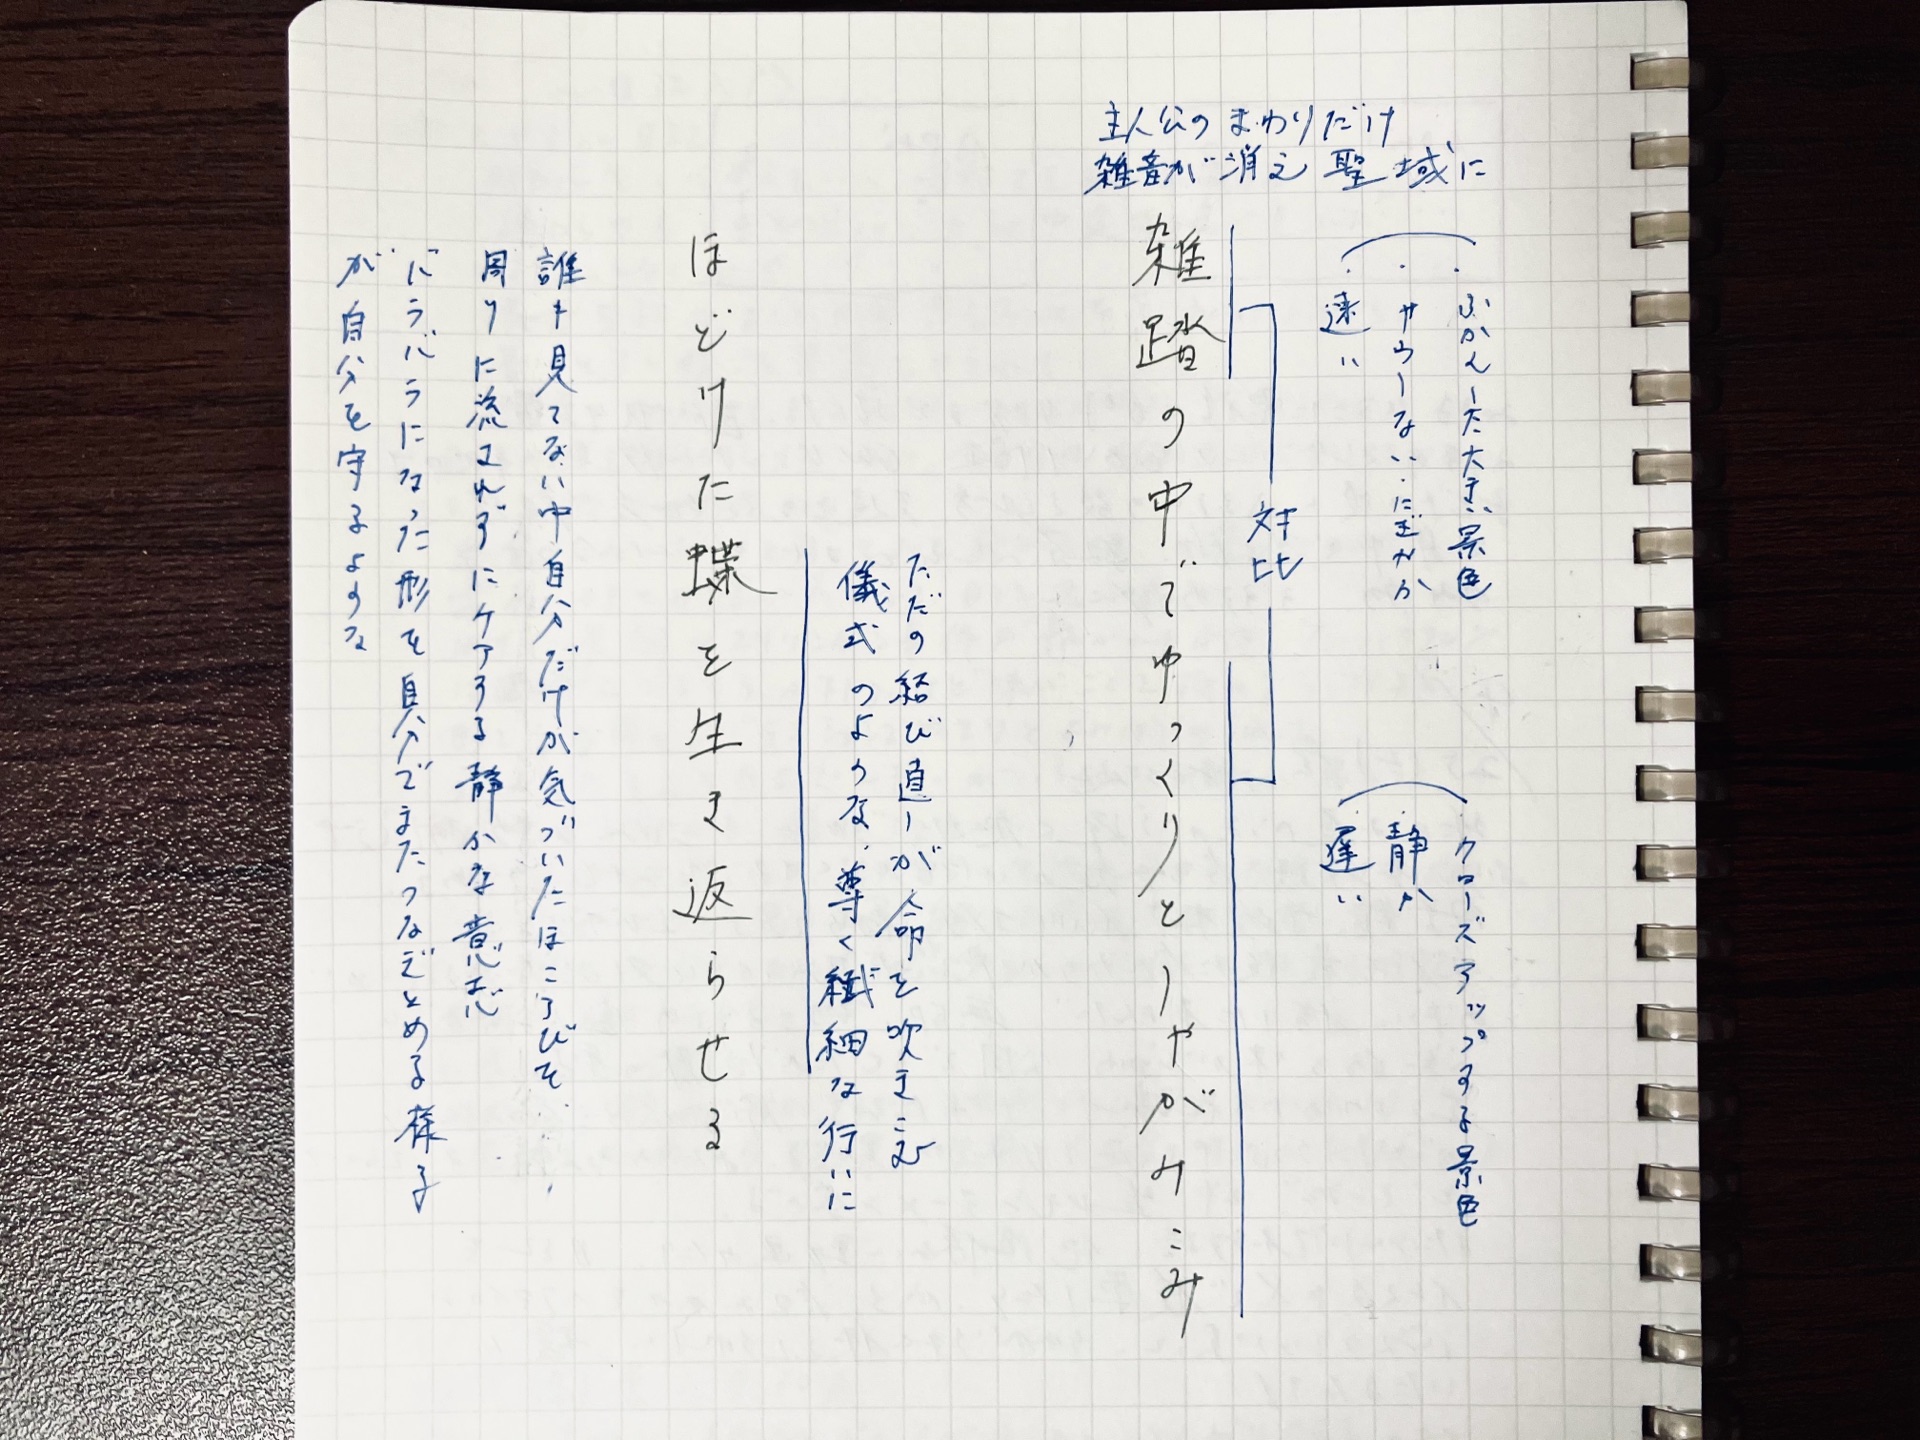 主人公のまわりだけ
雑音が消え聖域に
・ふかんした大きい景色
・せわしない・にぎやか
・速い
・クローズアップする景色
・静か
・遅い
対比
雑踏の中でゆっくりとしゃがみこみ
ただの結び直しが命を吹きこむ
儀式のような、尊く繊細な行いに
ほどけた蝶を生き返らせる
誰も見てない中自分だけが気づいたほころびを
周りに流されずにケアする静かな意志
バラバラになった形を自分でまたつなぎとめる様子
が自分を守るような